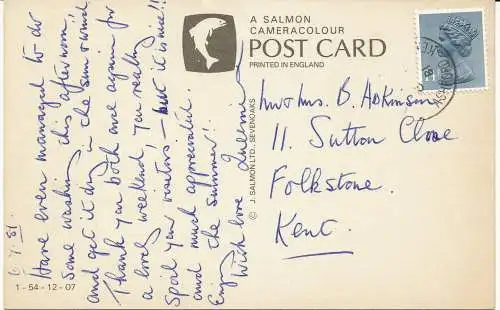 A SALMON
CAMERACOLOUR
POST CARD
PRINTED IN ENGLAND
© J. SALMON LTD., SEVENOAKS
1-54-12-07
6.7.81.
Have even managed to do
some washing this afternoon,
and get it dry in the sun & wind
Thank you both once again for
a lovely weekend! You really
spoil your visitors – but it is nice!!
and much appreciated.
Enjoy the summer!
With love
Mr & Mrs. B. Adkinson,
11. Sutton Close
Folkstone.
Kent.